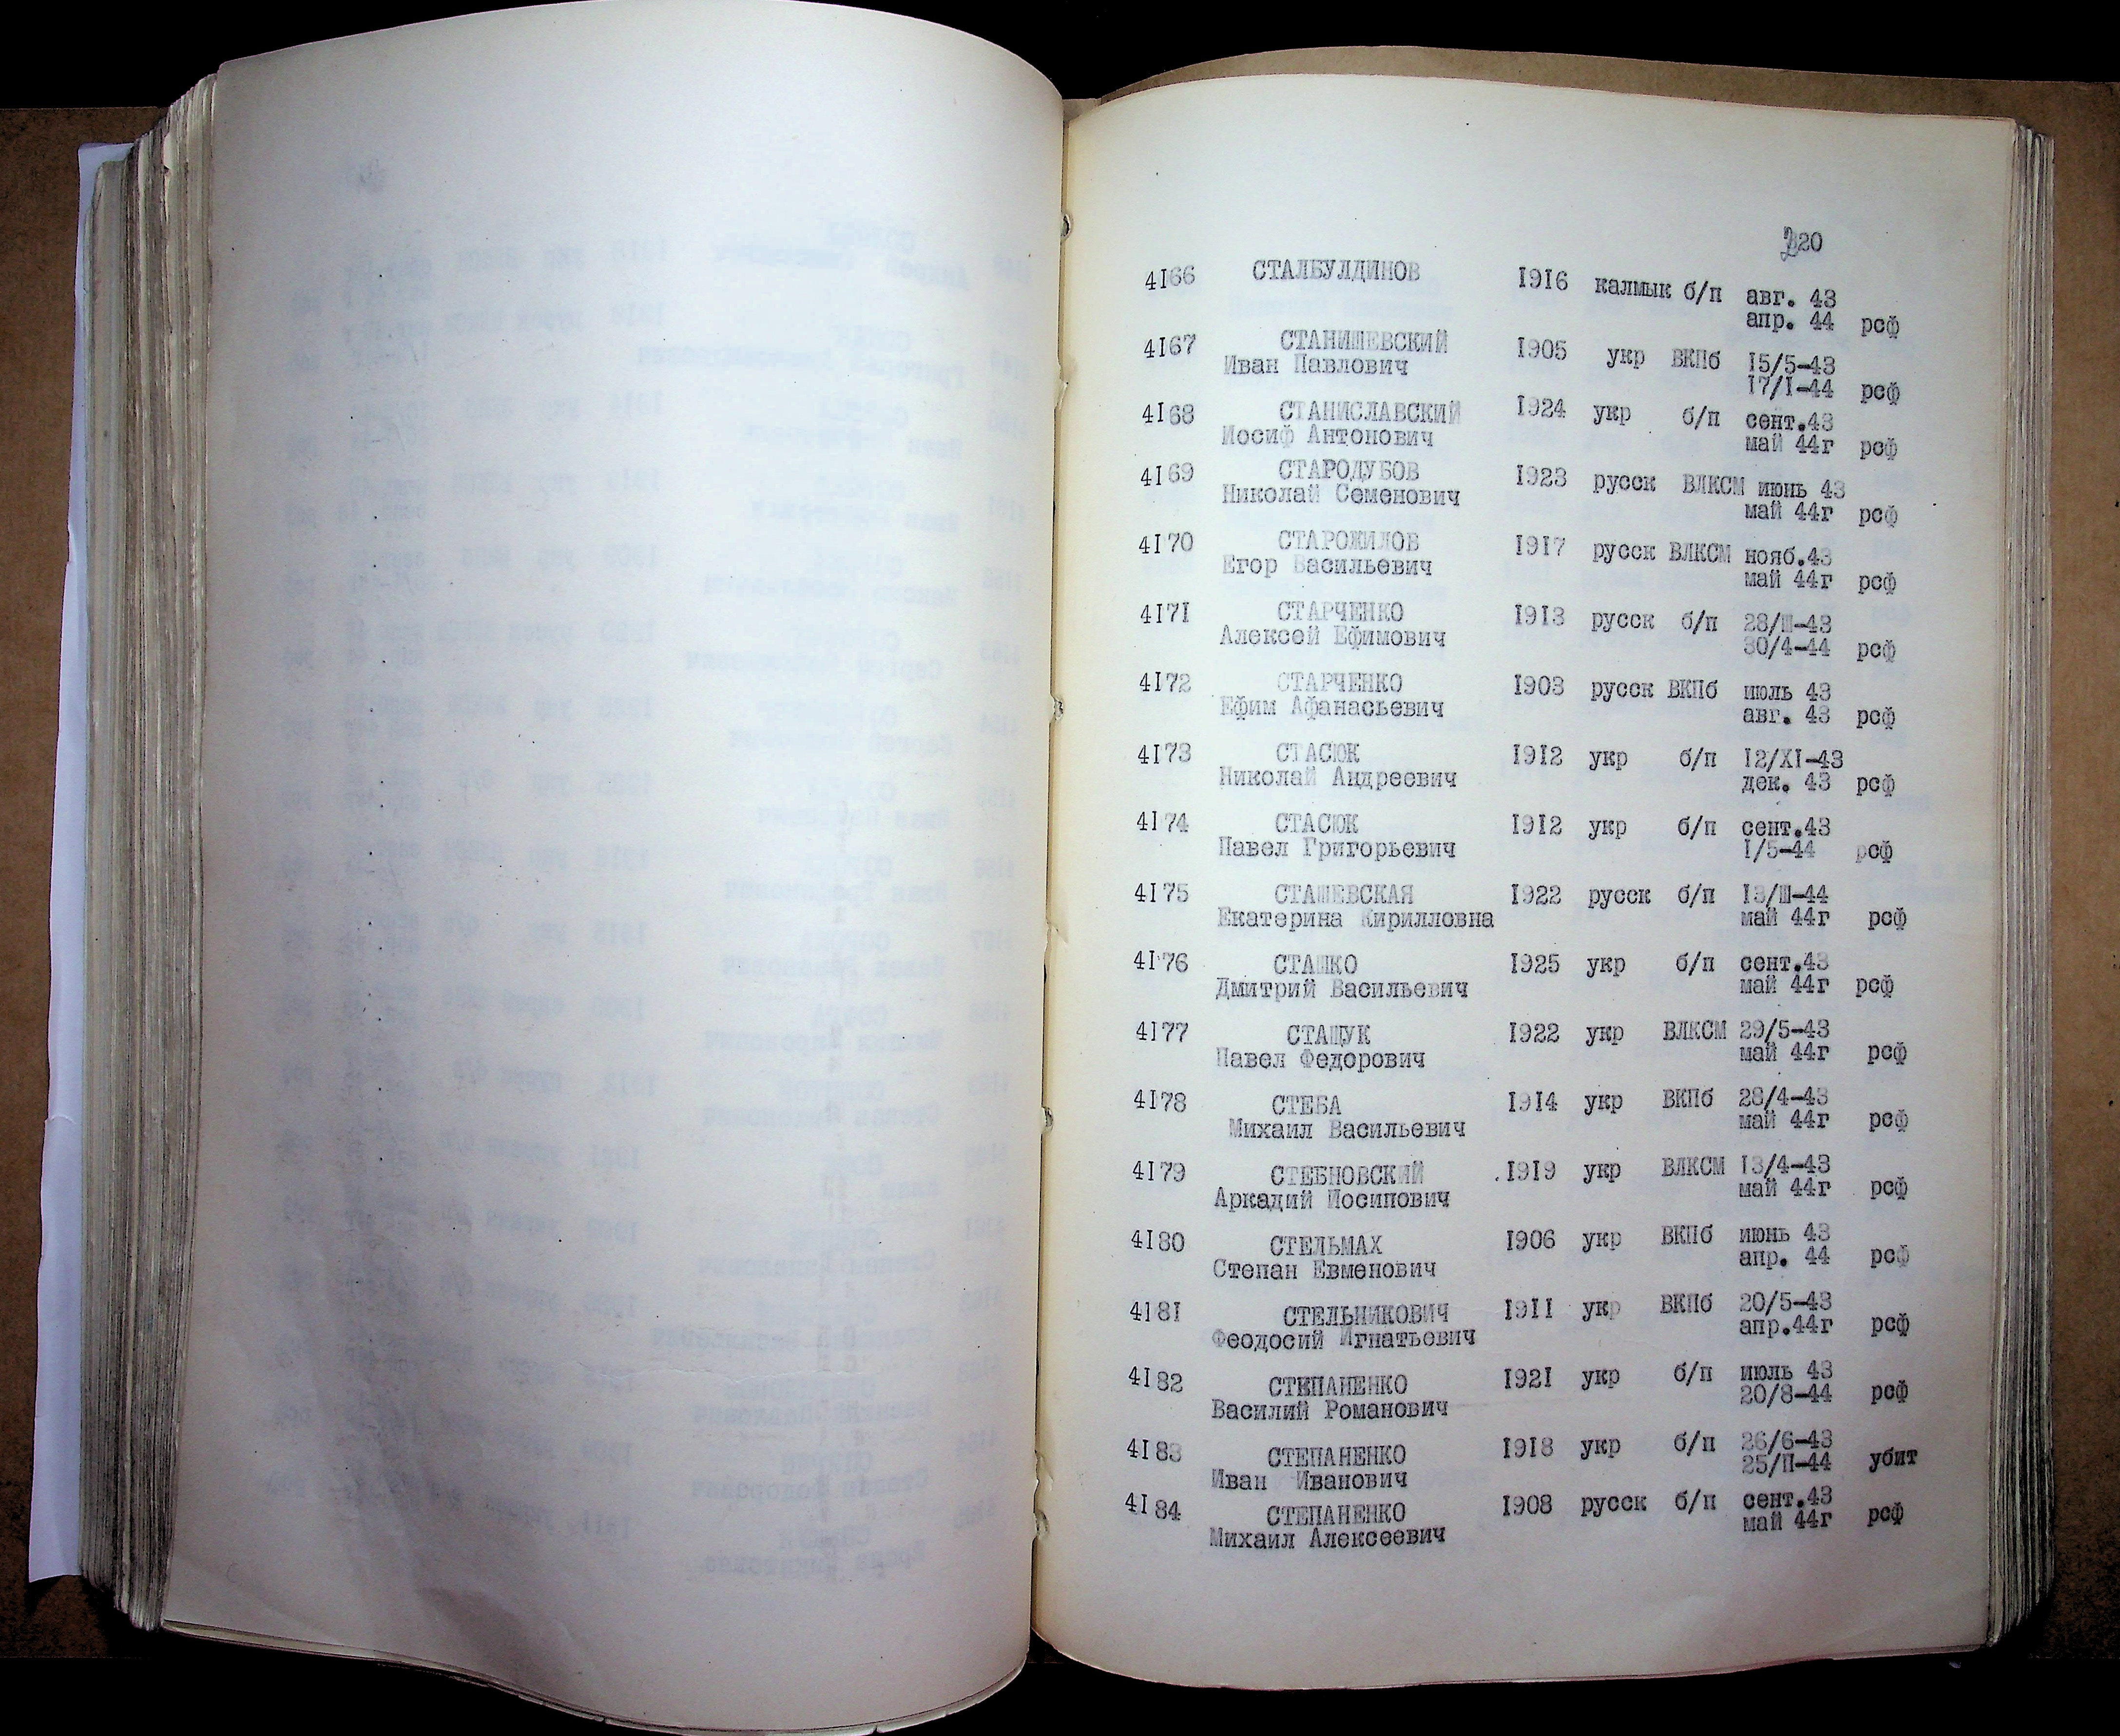 220
4166 СТАЛБУЛДИНОВ 1916 калмык б/п авг. 43
апр. 44 рсф
4167 СТАНИШЕВСКИЙ 1905 укр ВКПб 15/5-43
Иван Павлович 17/I-44 рсф
4168 СТАНИСЛАВСКИЙ 1924 укр б/п сент.43
Иосиф Антонович май 44г рсф
4169 СТАРОДУБОВ 1923 русск ВЛКСМ июнь 43
Николай Семенович май 44г рсф
4170 СТАРОЖИЛОВ 1917 русск ВЛКСМ нояб.43
Егор Васильевич май 44г рсф
4171 СТАРЧЕНКО 1913 русск б/п 28/Ш-43
Алексей Ефимович 30/4-44 рсф
4172 СТАРЧЕНКО 1903 русск ВКПб июль 43
Ефим Афанасьевич авг. 43 рсф
4173 СТАСЮК 1912 укр б/п 12/XI-43
Николай Андреевич дек. 43 рсф
4174 СТАСЮК 1912 укр б/п сент.43
Павел Григорьевич 1/5-44 рсф
4175 СТАШЕВСКАЯ 1922 русск б/п 13/Ш-44
Екатерина Кирилловна май 44г рсф
4176 СТАШКО 1925 укр б/п сент.43
Дмитрий Васильевич май 44г рсф
4177 СТАЩУК 1922 укр ВЛКСМ 29/5-43
Павел Федорович май 44г рсф
4178 СТЕБА 1914 укр ВКПб 28/4-43
Михаил Васильевич май 44г рсф
4179 СТЕБНОВСКИЙ 1919 укр ВЛКСМ 13/4-43
Аркадий Иосипович май 44г рсф
4180 СТЕЛЬМАХ 1906 укр ВКПб июнь 43
Степан Евменович апр. 44 рсф
4181 СТЕЛЬНИКОВИЧ 1911 укр ВКПб 20/5-43
Феодосий Игнатьевич апр.44г рсф
4182 СТЕПАНЕНКО 1921 укр б/п июль 43
Василий Романович 20/8-44 рсф
4183 СТЕПАНЕНКО 1918 укр б/п 26/6-43
Иван Иванович 25/П-44 убит
4184 СТЕПАНЕНКО 1908 русск б/п сент.43
Михаил Алексеевич май 44г рсф